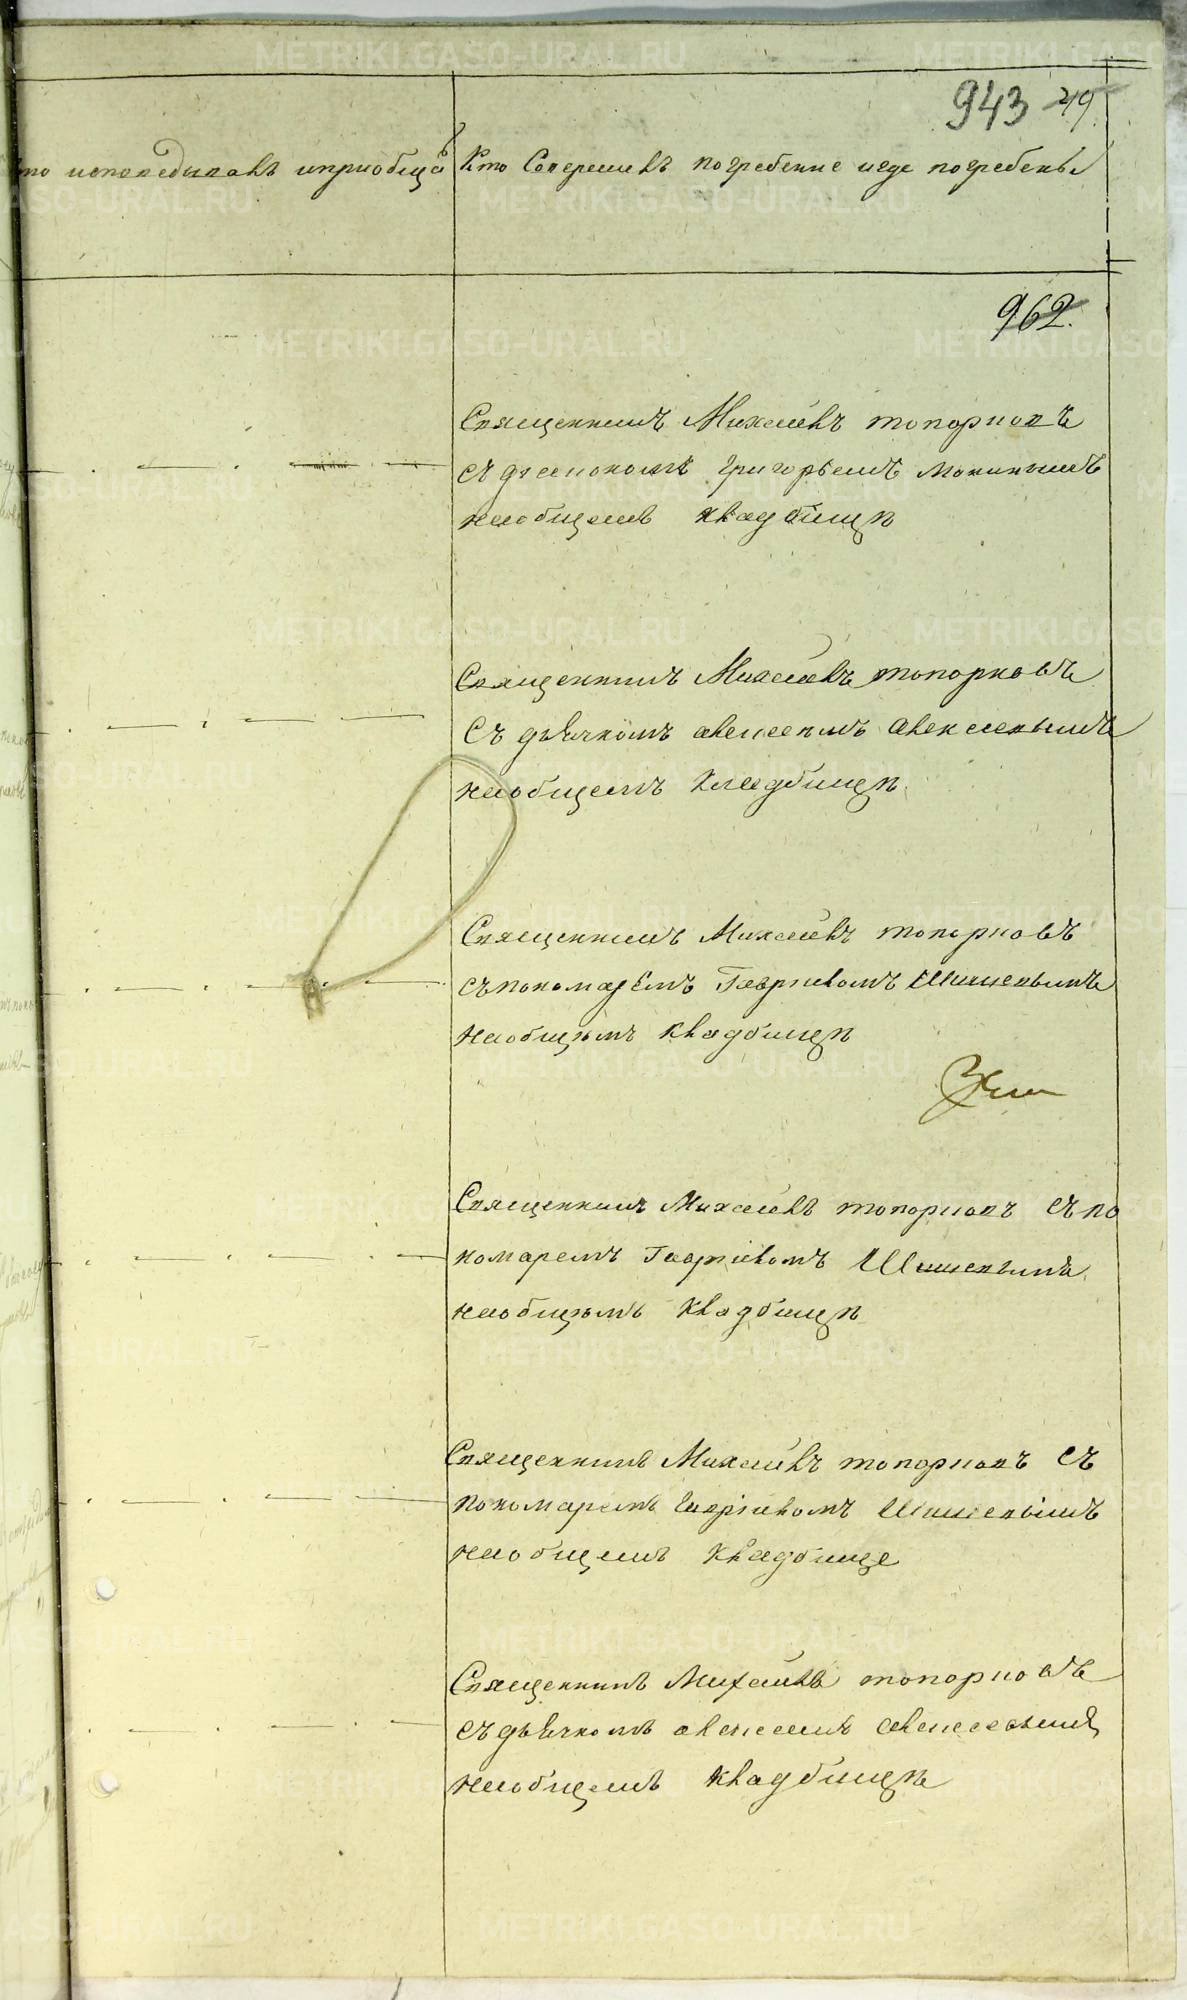 943 49.
кто исповедывалъ и приобщалъ
Кто Совершилъ погребение и где погребены
962.
Священникъ Михаилъ топорковъ
съ диакономъ Григорьемъ Мокинымъ
на общемъ кладбищѣ
Священникъ Михаилъ топорковъ
Съ дьячкомъ алексеемъ алексеевымъ
на общемъ кладбищѣ
Священникъ Михаилъ топорковъ
съ пономаремъ Гавриломъ Шишевымъ
на общемъ кладбищѣ
Священникъ Михаилъ топорковъ съ по
номаремъ Гавриломъ Шишевымъ
на общемъ кладбищѣ
Священникъ Михаилъ топорковъ съ
пономаремъ Гавриломъ Шишевымъ
на общемъ кладбище
Священникъ Михаилъ топорковъ
съ дьячкомъ алексеемъ алексеевымъ
на общемъ кладбищѣ
METRIKI.GASO-URAL.RU